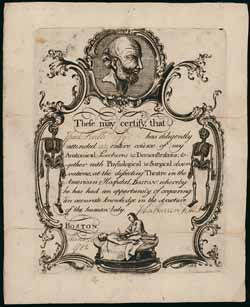 These may certify, that
has diligently
attended an entire course of my
Anatomical Lectures & Demonstrations; to-
gether with Physiological & Surgical obser-
vations, at the dissecting Theatre in the
American Hospital, Boston; whereby
he has had an opportunity of acquiring
an accurate knowledge in the structure
of the human body.
Boston